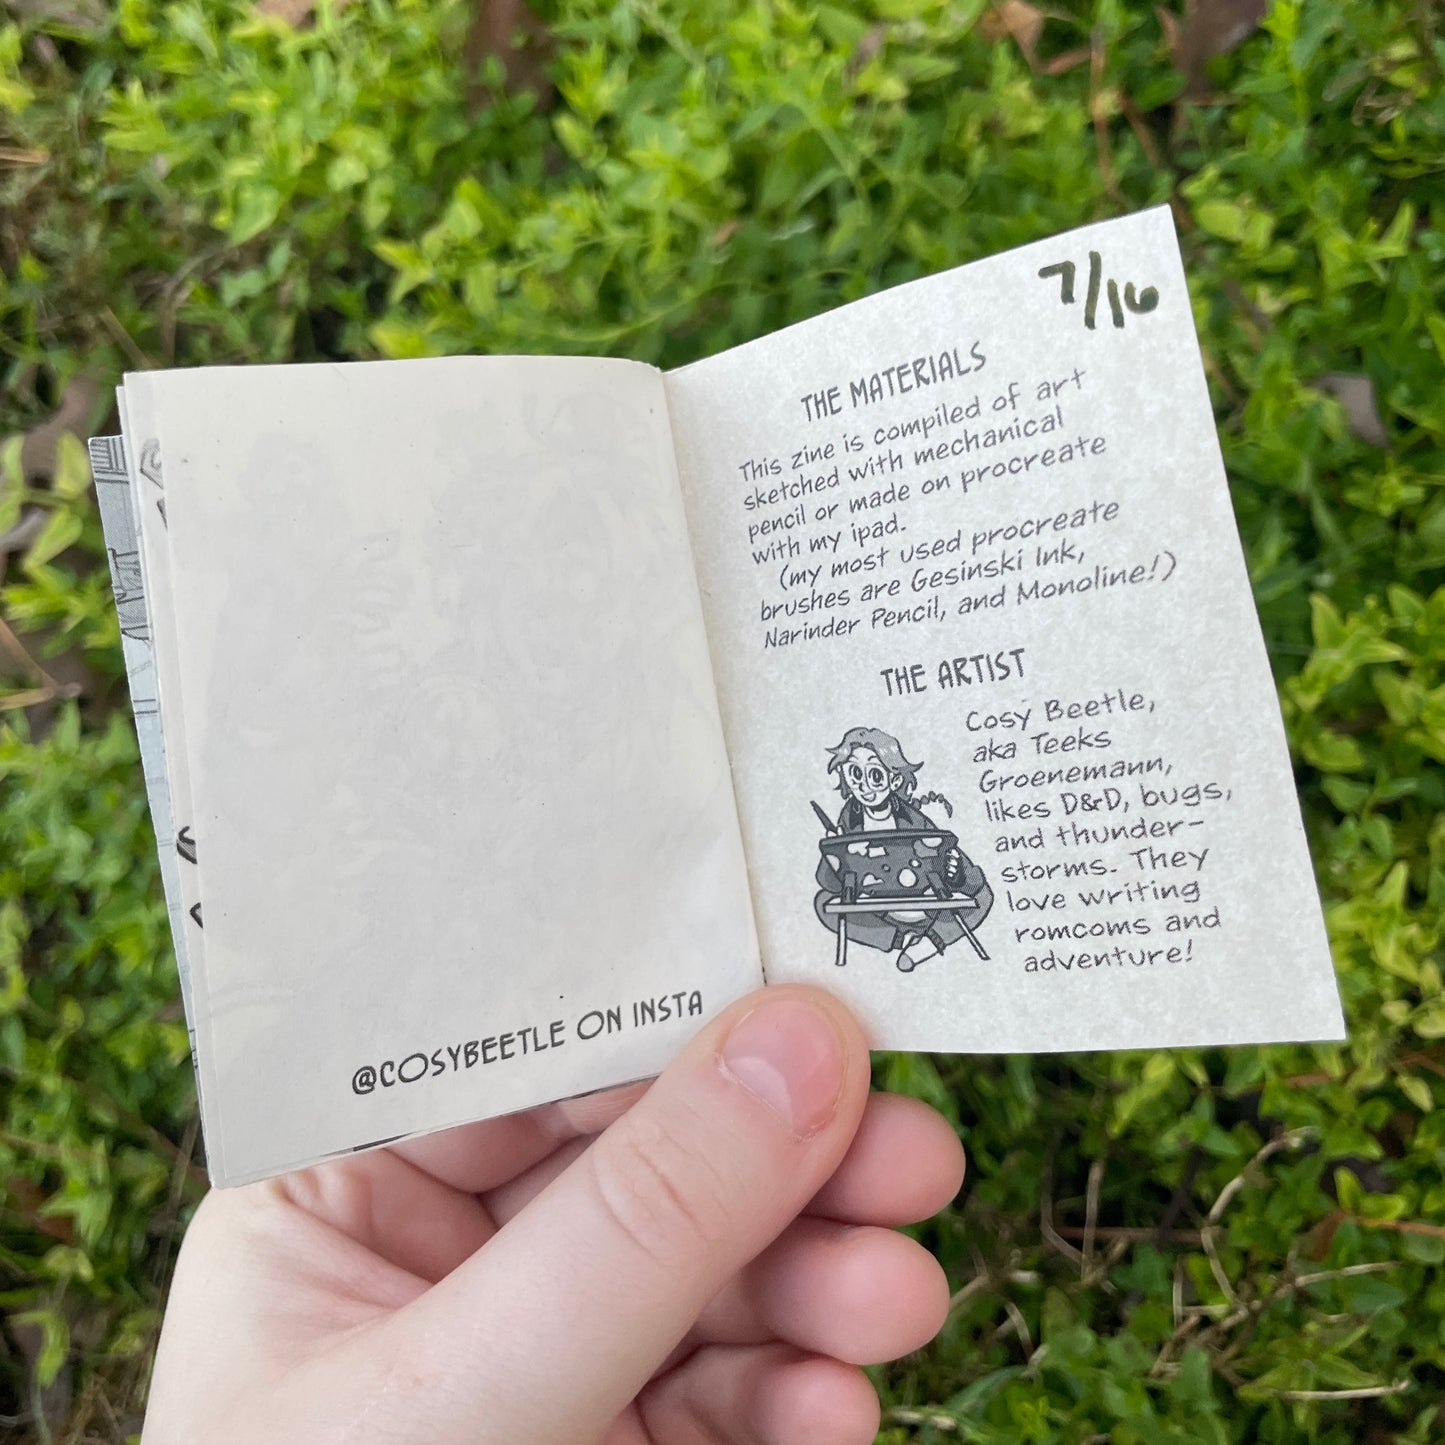 @COSYBEETLE ON INSTA
7/16
THE MATERIALS
This zine is compiled of art
sketched with mechanical
pencil or made on procreate
with my ipad.
(my most used procreate
brushes are Gesinski Ink,
Narinder Pencil, and Monoline!)
THE ARTIST
Cosy Beetle,
aka Teeks
Groenemann,
likes D&D, bugs,
and thunder-
storms. They
love writing
romcoms and
adventure!